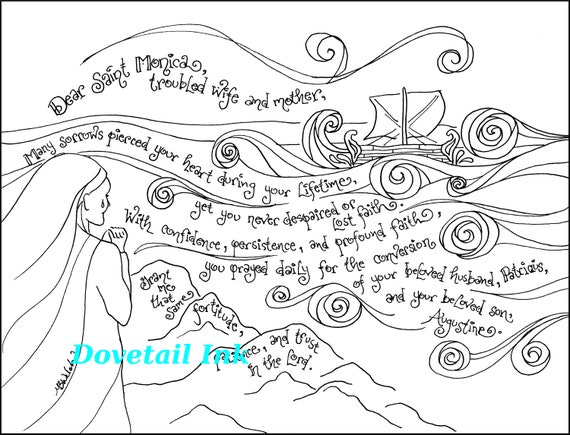 Dear Saint Monica,
troubled wife and mother,
Many sorrows pierced your heart during your lifetime,
yet you never despaired or
lost faith.
With confidence, persistence, and profound faith,
you prayed daily for the conversion
of your beloved husband, Patricius,
and your beloved son,
Augustine.
Grant me
that
same
fortitude,
and trust
in the Lord.
Dovetail Ink